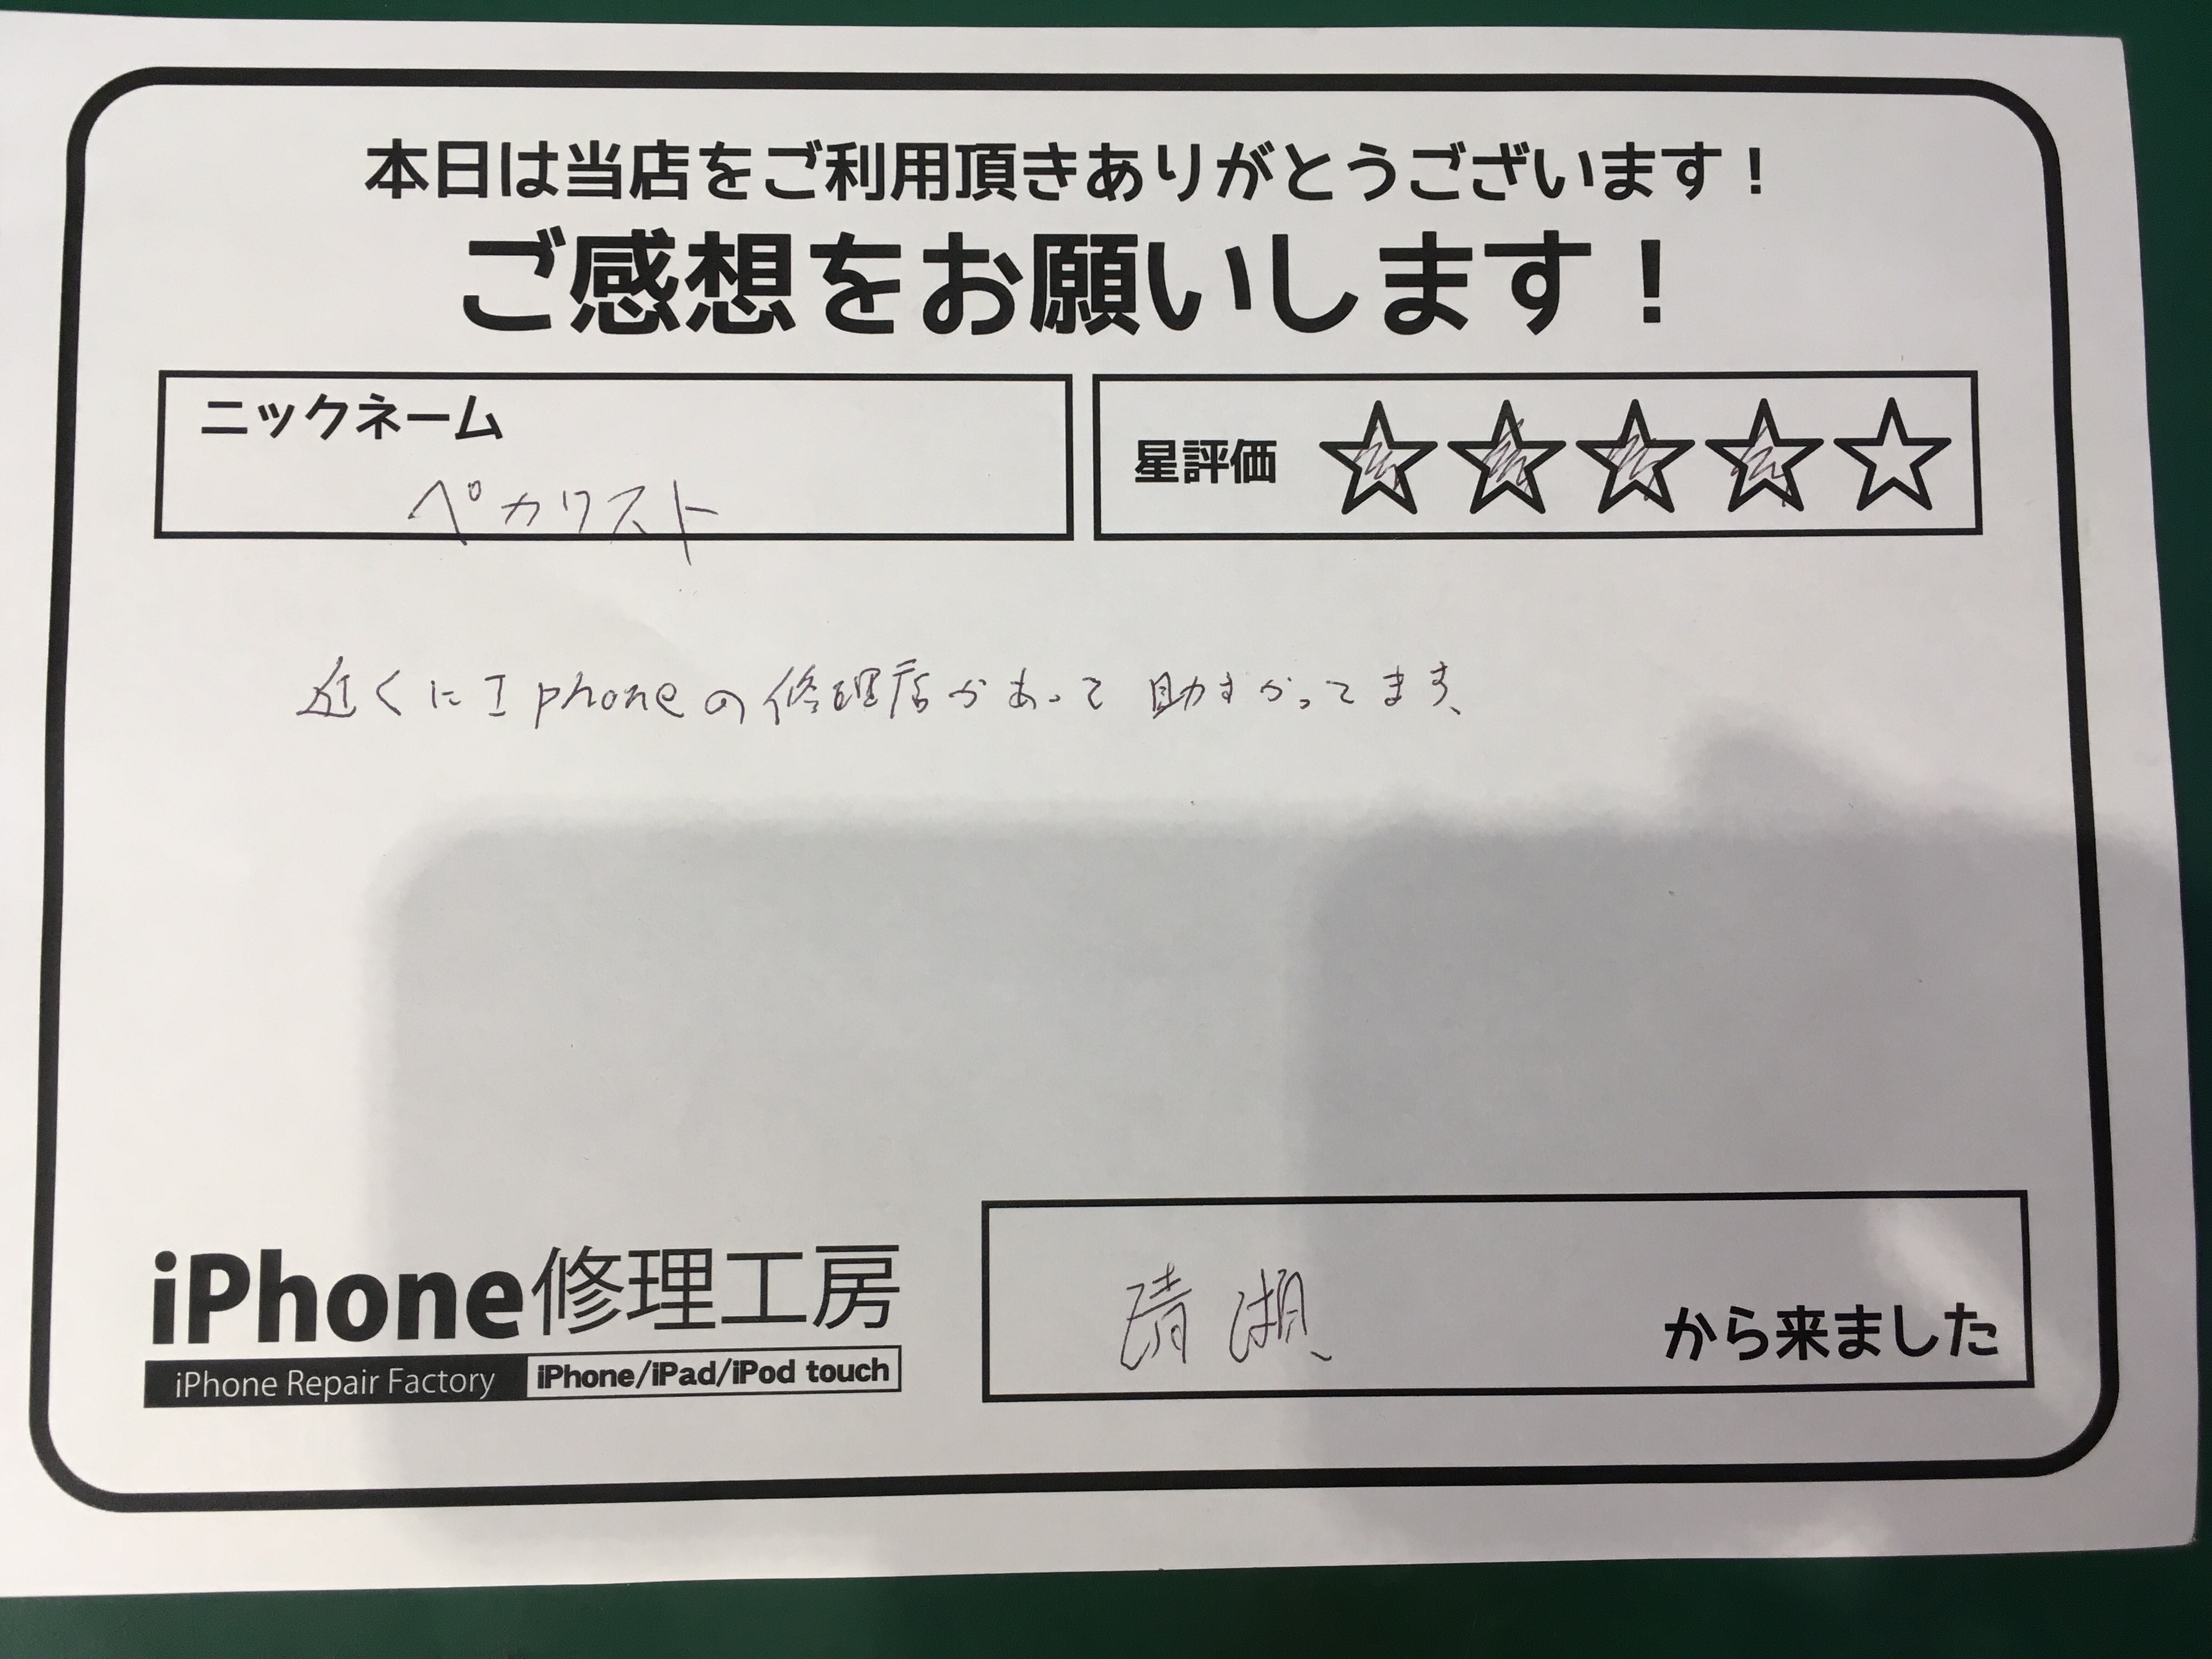 本日は当店をご利用頂きありがとうございます！
ご感想をお願いします！
ニックネーム
ペカリスト
星評価 ★★★★☆
近くにIphoneの修理店があって助すかってます、
iPhone修理工房
iPhone Repair Factory iPhone/iPad/iPod touch
から来ました